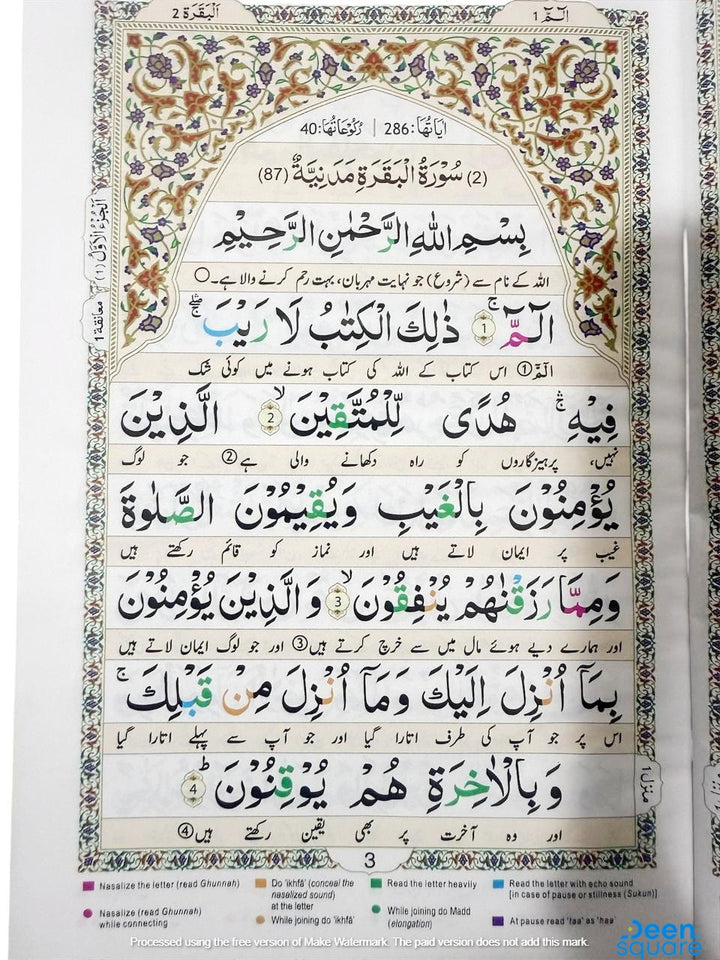 الٓمّٓ 1
اَلْبَقَرَة 2
اٰيَاتُهَا: 286 | رُكُوْعَاتُهَا: 40
(2) سُوْرَةُ الْبَقَرَةِ مَدَنِيَّةٌ (87)
بِسْمِ اللهِ الرَّحْمٰنِ الرَّحِيْمِ
اللہ کے نام سے (شروع) جو نہایت مہربان، بہت رحم کرنے والا ہے۔○
الٓمّٓ ۚ 1 ذٰلِكَ الْكِتٰبُ لَا رَيْبَ ۛۚ
الٓمّٓ ① اس کتاب کے اللہ کی کتاب ہونے میں کوئی شک
فِيْهِ ۛۚ هُدًى لِّلْمُتَّقِيْنَ ۙ 2 الَّذِيْنَ
نہیں، پرہیزگاروں کو راہ دکھانے والی ہے② جو لوگ
يُؤْمِنُوْنَ بِالْغَيْبِ وَيُقِيْمُوْنَ الصَّلٰوةَ
غیب پر ایمان لاتے ہیں اور نماز کو قائم رکھتے ہیں
وَمِمَّا رَزَقْنٰهُمْ يُنْفِقُوْنَ ۙ 3 وَالَّذِيْنَ يُؤْمِنُوْنَ
اور ہمارے دیے ہوئے مال میں سے خرچ کرتے ہیں③ اور جو لوگ ایمان لاتے ہیں
بِمَآ اُنْزِلَ اِلَيْكَ وَمَآ اُنْزِلَ مِنْ قَبْلِكَ ۚ
اس پر جو آپ کی طرف اتارا گیا اور جو آپ سے پہلے اتارا گیا
وَبِالْاٰخِرَةِ هُمْ يُوْقِنُوْنَ ؕ 4
اور وہ آخرت پر بھی یقین رکھتے ہیں④
اَلْجُزْءُ الْاَوَّلُ (1)
معانقة 1
منزل 1
3
Nasalize the letter (read Ghunnah)
Do 'ikhfâ' (conceal the nasalized sound) at the letter
Read the letter heavily
Read the letter with echo sound [in case of pause or stillness (Sukun)]
Nasalize (read Ghunnah) while connecting
While joining do 'ikhfâ'
While joining do Madd (elongation)
At pause read 'taa' as 'haa'
Processed using the free version of Make Watermark. The paid version does not add this mark.
Deen
square